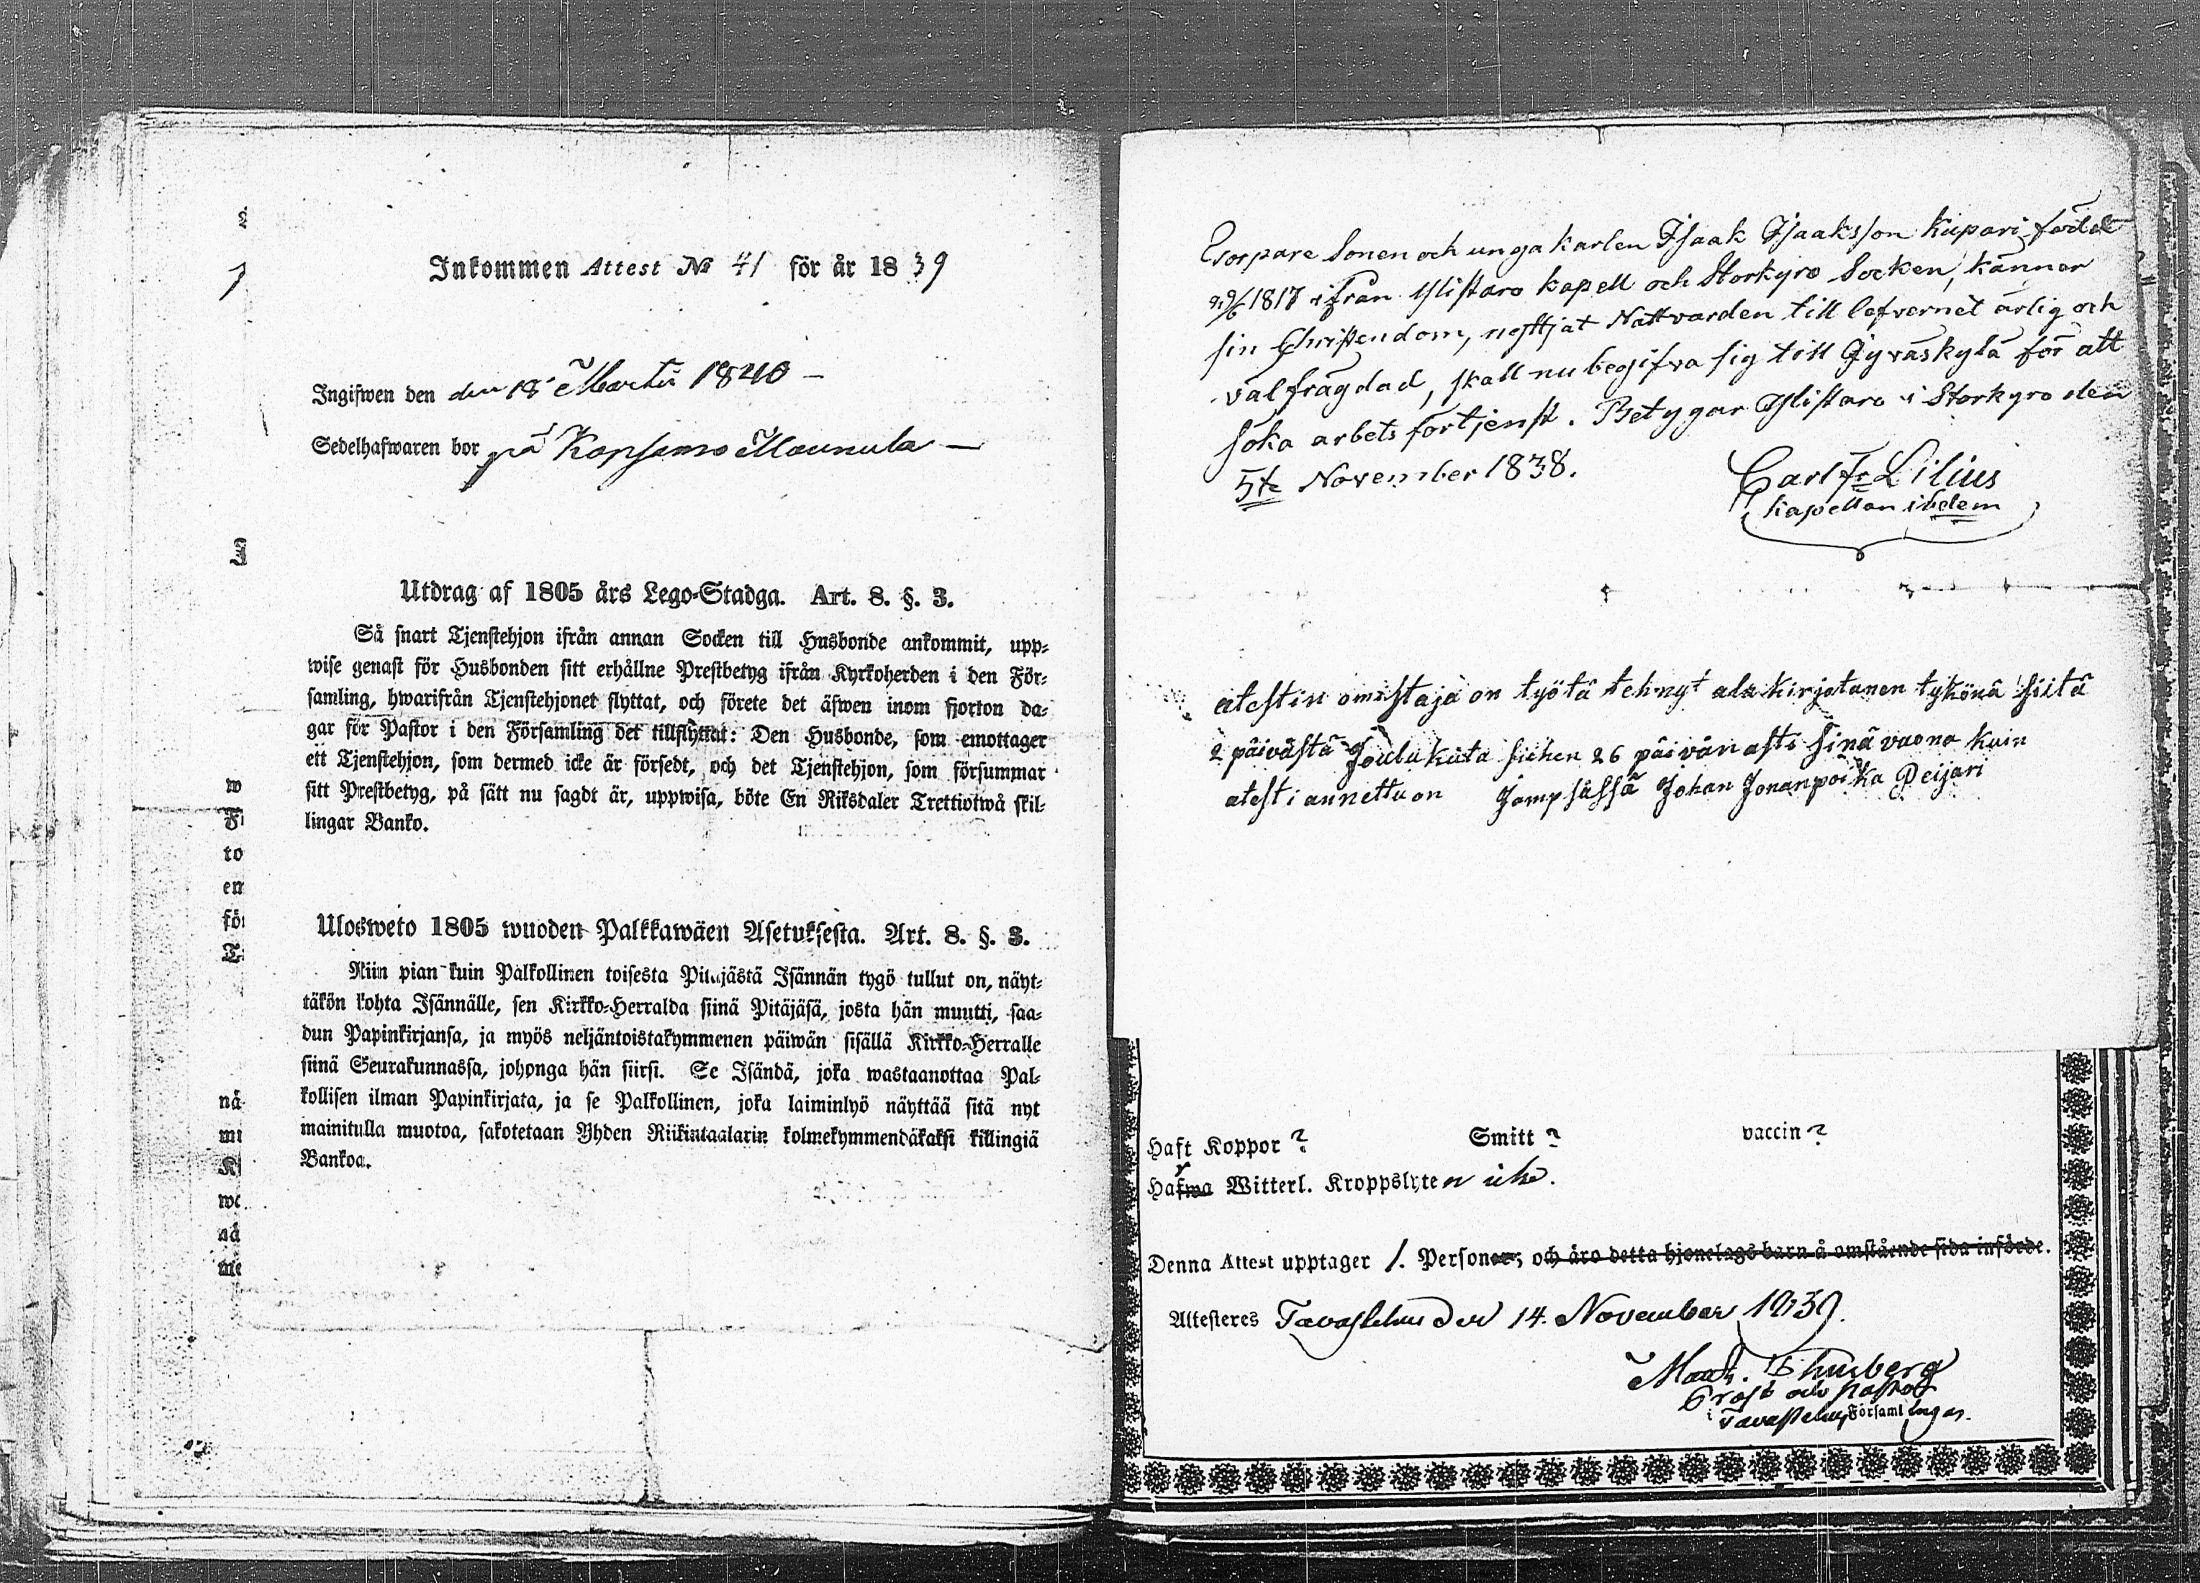 Inkommen Attest № 41 för år 1839
Ingifwen den den 18 Martii 1840 —
Sedelhafwaren bor på Kapsamo Maunula —
Utdrag af 1805 års Lego-Stadga. Art. 8. §. 3.
Så snart Tjenstehjon ifrån annan Socken till Husbonde ankommit, upp-
wise genast för Husbonden sitt erhållne Prestbetyg ifrån Kyrkoherden i den För-
samling, hwarifrån Tjenstehjonet flyttat, och förete det äfwen inom fjorton da-
gar för Pastor i den Församling det tillflyttat: Den Husbonde, som emottager
ett Tjenstehjon, som dermed icke är försedt, och det Tjenstehjon, som försummar
sitt Prestbetyg, på sätt nu sagdt är, uppwisa, böte En Riksdaler Trettiotwå skil-
lingar Banko.
Ulosweto 1805 wuoden Palkkawäen Asetuksesta. Art. 8. §. 3.
Niin pian kuin Palkollinen toisesta Pitäjästä Isännän tygö tullut on, näyt-
täkön kohta Isännälle, sen Kirkko-Herralda siinä Pitäjäsä, josta hän muutti, saa-
dun Papinkirjansa, ja myös neljäntoistakymmenen päiwän sisällä Kirkko-Herralle
siinä Seurakunnassa, johonga hän siirsi. Se Isändä, joka wastaanottaa Pal-
kollisen ilman Papinkirjata, ja se Palkollinen, joka laiminlyö näyttää sitä nyt
mainitulla muotoa, sakotetaan Yhden Riikintaalarin kolmekymmendäkaksi killingiä
Bankoa.
w
to
em
för
nå
mi
we
nå
me
Torpare Sonen och unga karlen Isaak Isaaksson Kupari född
1817 ifrån Ylistaro kapell och Storkyro Socken, känner
sin Christendom, nyttjat Nattvarden till lefvernet ärlig och
välfrägdad, skall nu begifva sig till Jyväskylä för att
söka arbets förtjenst. Betygar Ylistaro i Storkyro den
5te November 1838.
Carl Fr Lilius
kapellan ibidem
atestin omistaja on työtä tehnyt ala kirjotanen tykönä siitä
2 päivästä Joulukuta siihen 26 päivän asti sinä vuona kuin
atesti annettu on Jämpsässä Johan Jonanpoika Peijari
Haft Koppor ? Smitt ? vaccin ?
Hafwa Witterl. Kroppslyten icke.
Denna Attest upptager 1. Personer, och äro detta hjonelags barn å omstående sida införde.
Attesteres Tavastehus den 14. November 1839.
Math. Thusberg
Prost och Pastor
i Tavastehus Församlingar.